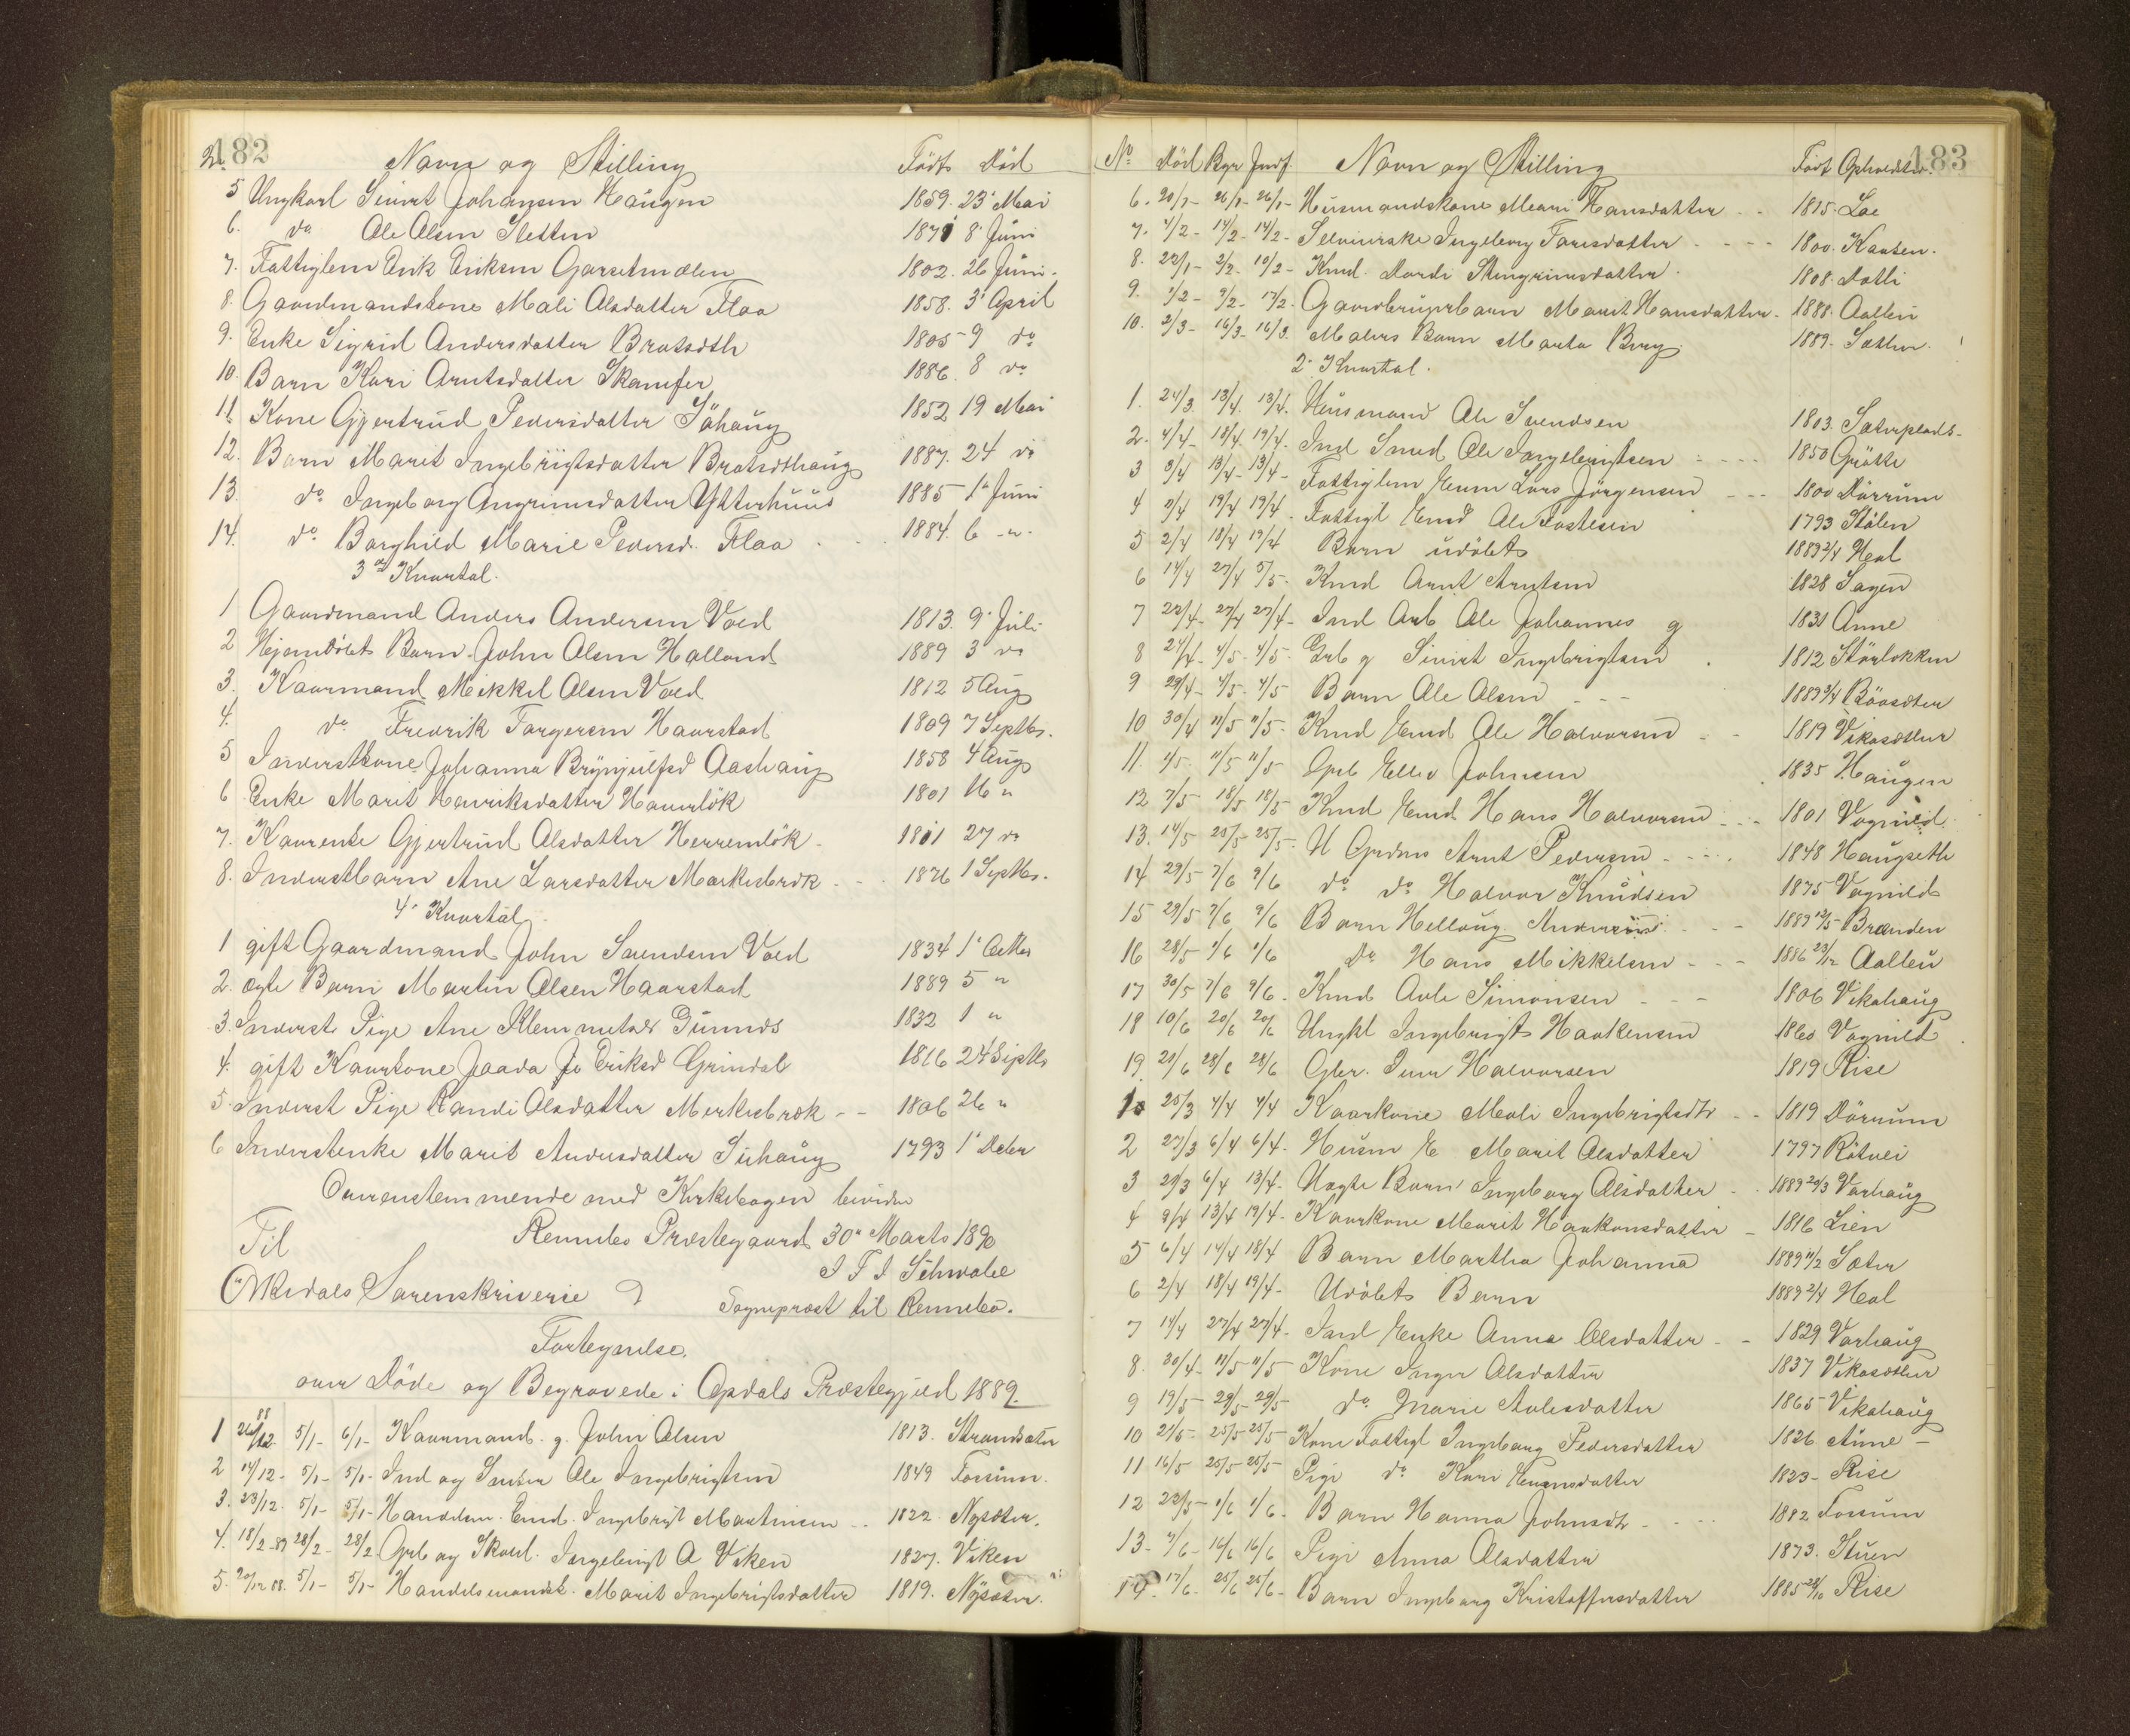 182
No Navn og Stilling Födt Död
5 Ungkarl Sivert Johansen Haugen 1859. 23' Mai
6. do Ole Olsen Sletten 1871 8' Juni
7. Fattiglem Erik Eriksen Garsetmælen 1802. 26 Juni.
8. Gaardmandskone Mali Olsdatter Flaa 1858. 3' April
9. Enke Sigrid Andersdatter Bratseth 1805 - 9 do
10. Barn Kari Arntsdatter Skamfer 1886. 8 do
11. Kone Gjertrud Pedersdatter Söhaug 1852 19 Mai
12. Barn Marit Ingebrigtsdatter Bratsethaug 1887. 24 do
13. do Ingeborg Angrimsdatter Ytterhuus 1885 1' Juni
14. do Borghild Marie Pedersd. Flaa 1884. 6 -"-
3die Kvartal.
1 Gaardmand Anders Andersen Vold 1813. 9' Juli
2 Hjemdöbt Barn John Olsen Halland 1889 3 do
3. Kaarmand Mikkel Olsen Vold 1812 5 Aug
4. do Fredrik Torgersen Haarstad 1809 7 Septbr.
5 Inderstkone Johanna Brynjulfsd Aashaug 1858 4 Aug
6 Enke Marit Henriksdatter Haverlök 1801 16 "
7. Kaarenke Gjertrud Olsdatter Herremlök 1811 27 do
8. Inderstbarn Ane Larsdatter Mærkesbrok 1876 1 Septbr.
4' Kvartal
1 gift Gaardmand John Svendsen Vold 1834 1' Octbr
2. ægte Barn Martin Olsen Haarstad 1889 5 "
3. Inderst Pige Ane Klemmetsd Gunnes 1832 1 "
4. gift Kaarkone Jo Eriksd Grindal 1816 24 Septbr
5. Inderst Pige Randi Olsdatter Merkesbrok - - 1806 26 "
6 Inderstenke Marit Andersdatter Suhaug 1793 1' Decbr
Overenstemmende med Kirkebogen bevidner
Rennebo Præstegaard 30te Marts 1890
Til J F J Schwabe
Orkedals Sorenskriverie Sognepræst til Rennebo.
Fortegnelse
over Döde og Begravede i Opdals Præstegjeld 1889.
1 26/12 88 5/1- 6/1- Kaarmand. g. John Olsen 1813. Strandsæter
2 14/12- 5/1- 5/1- Ind og Snider Ole Ingebrigtsen 1849 Fossum.
3. 23/12. 5/1- 5/1- Handelsm. Emd. Ingebrigt Martinsen - - 1822. Nysæter.
4. 18/2-89 28/2- 28/2 Gpb og Skoul. Ingebrigt O Viken 1827. Viken
5. 20/12 88. 5/1- 5/1- Handelsmandsk. Marit Ingebrigtsdatter 1819. Nysæter.
183
No Död Bgr Jndf. Navn og Stilling Födt Opholdsted.
6. 20/1- 26/1- 26/1- Husmandskone Mari Hansdatter - - 1815. Loe
7. 4/2- 14/2- 14/2- Selveierske Ingeborg Toresdatter - - - - 1800. Kaasen.
8. 22/1- 2/2- 10/2- Kmd. Dordi Stengrimsdatter. 1808. Dotli
9. 1/2- 9/2- 17/2- Gaardbrugerbarn Marit Hansdatter - 1888. Aallen
10. 2/3- 16/3- 16/3. Malers Barn Marta Berg. 1889. Sæther.
2' Kvartal.
1. 24/3. 13/4. 13/4. Husmand Ole Svendsen 1803. Sæterplads.
2. 4/4- 18/4. 19/4. Ind Smed Ole Ingebrigtsen - - - - 1850 Grötte
3 3/4 13/4- 13/4- Fattiglem Enem Lars Jörgensen - - - 1800 Dörrum
4 4/4 19/4 19/4. Fattigl Emd Ole Tostesen 1793 Stölen
5 2/4 18/4 19/4 Barn udöbt 1889 2/4 Hol
6 14/4 27/4 5/5- Kmd Arnt Arntsen 1828 Sagen
7 22/4- 27/4 27/4- Ind Arb Ole Johannes g 1831 Aune
8 24/4- 4/5- 4/5- Grb g Sivert Ingebrigtsen . 1812 Störlokken
9 29/4- 4/5- 4/5 Barn Ole Olsen - - - 1889 9/4 Böasæter
10 30/4 11/5 11/5- Kmd Emd Ole Halvorsen - - 1819 Vikasætter
11. 4/5- 11/5 11/5 Gpb Ellev Johnsen 1835 Haugen
12 7/5 18/5 18/5- Kmd Emd Hans Halvorsen - - - 1801 Vognild
13. 14/5 25/5- 25/5- U Gpdms Arnt Pedersen - - - . 1848 Haugseth
14 29/5 7/6 9/6 do do Halvor Knudsen 1875 Vognild
15 29/5 7/6 9/6 Barn Hellaug Andersen - - - 1889 12/5 Brænden
16 28/5 1/6 1/6 do Hans Mikkelsen - - - 1886 23/12 Aallen
17 30/5 7/6 9/6. Kmd Avle Simonsen - - - 1806 Vikahaug
18 10/6 20/6 20/6 Ungkl Ingebrigt Haakensen 1860 Vognild
19. 21/6 28/6 28/6 Gbr. Iver Halvorsen 1819 Rise
1. 25/3 4/4 4/4 Kaarkone Mali Ingebrigtsdtr - - 1819 Dörrum
2 27/3 6/4 6/4. Husm E Marit Olsdatter 1797 Rötvei
3 21/3 6/4 13/4. Uægte Barn Ingeborg Olsdatter - . 1889 20/3 Vorhaug
4 9/4 13/4 19/4. Kaarkone Marit Haakonsdatter - 1816 Lien
5 6/4 14/4 18/4 Barn Martha Johanna 1889 11/2 Sæter
6 2/4 18/4 19/4- Udöbt Barn 1889 2/4 Hol
7 14/4 27/4 27/4- Ind Enke Anna Olsdatter - - 1829 Vorhaug
8. 30/4- 11/5- 11/5 Kone Inger Olsdatter 1837 Vikasætter
9 19/5- 29/5- 29/5- do Marie Avlesdatter 1865 Vikahaug
10 21/5- 25/5 25/5 Kone Fattigl Ingeborg Pedersdatter 1826 Aune -
11 16/5 25/5 25/5- Pige do Kari Evensdatter 1823 - Rise
12 22/5- 1/6 1/6- Barn Hanna Johnsdtr - - - - 1882 Fossum
13- 7/6- 16/6 16/6 Pige Anna Olsdatter 1873. Stuen
14. 17/6- 25/6 25/6- Barn Ingeborg Kristoffersdatter 1885 28/10 Rise